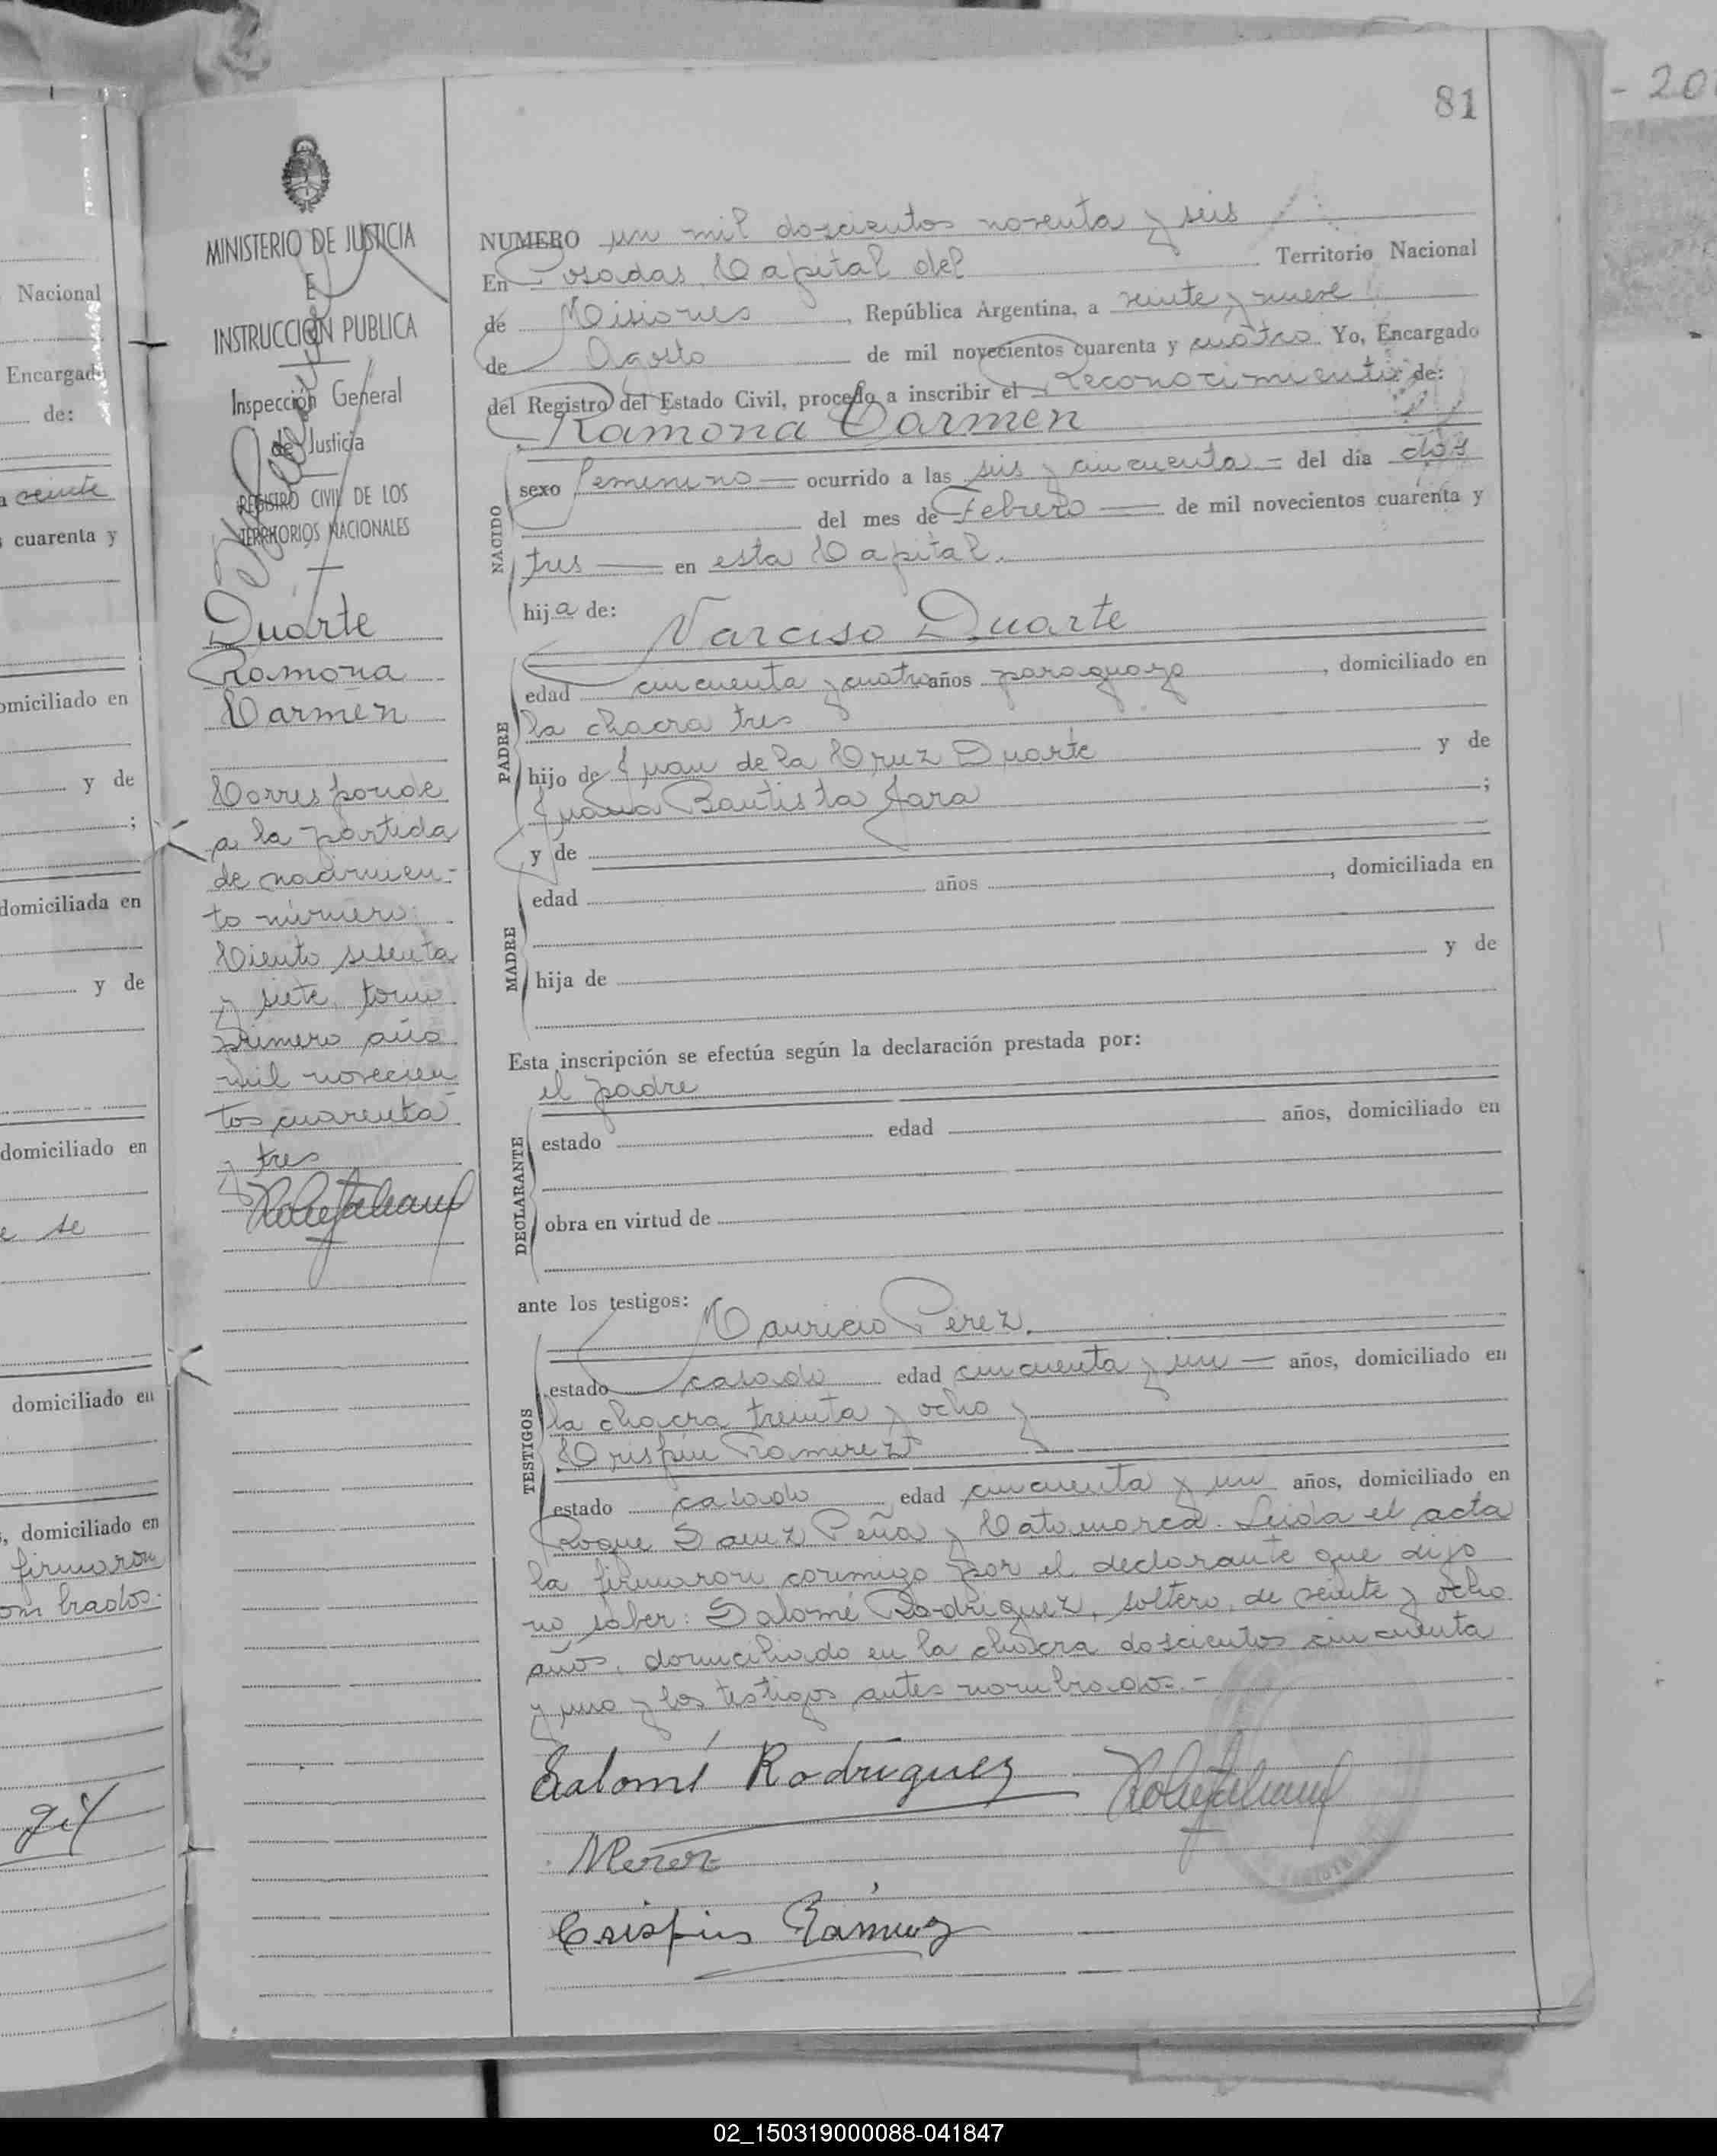 81
- 20
MINISTERIO DE JUSTICIA
E
INSTRUCCION PUBLICA
Inspección General
de Justicia
REGISTRO CIVIL DE LOS
TERRITORIOS NACIONALES
Duarte
Ramona
Carmen
Corresponde
a la partida
de nacimien-
to número
Ciento sesenta
y siete, tomo
primero año
mil novecien
tos cuarenta
y tres
NUMERO un mil doscientos noventa y seis
En Posadas, Capital del Territorio Nacional
de Misiones, República Argentina, a veinte y nueve
de Agosto de mil novecientos cuarenta y cuatro Yo, Encargado
del Registro del Estado Civil, procedo a inscribir el Reconocimiento de:
Ramona Carmen
NACIDO
sexo femenino — ocurrido a las seis y cincuenta = del día dos
del mes de Febrero — de mil novecientos cuarenta y
tres — en esta Capital.
hija de:
Narciso Duarte
PADRE
edad cincuenta y cuatro años paraguayo, domiciliado en
la chacra tres
hijo de Juan de la Cruz Duarte y de
Juana Bautista Jara ;
y de
MADRE
edad años , domiciliada en
hija de y de
Esta inscripción se efectúa según la declaración prestada por:
el padre
DECLARANTE
estado edad años, domiciliado en
obra en virtud de
ante los testigos:
Mauricio Perez.
TESTIGOS
estado casado edad cincuenta y un — años, domiciliado en
la chacra treinta y ocho y
Crispin Ramirez
estado casado edad cincuenta y un años, domiciliado en
Roque Saenz Peña y Catamarca. Leida el acta
la firmaron conmigo por el declarante que dijo
no saber: Salomé Rodriguez, soltero, de veinte y ocho
años, domiciliado en la chacra doscientos cincuenta
y uno y los testigos antes nombrados.-
Salomé Rodriguez
MPerez
Crispin Ramirez
Nacional
Encargado
de:
a veinte
cuarenta y
omiciliado en
y de
;
domiciliada en
y de
domiciliado en
e se
domiciliado en
, domiciliado en
firmaron
om brados.
02_150319000088-041847